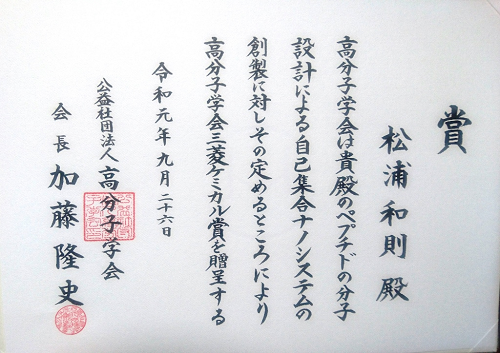 賞
松浦和則殿
高分子学会は貴殿のペプチドの分子
設計による自己集合ナノシステムの
創製に対しその定めるところにより
高分子学会三菱ケミカル賞を贈呈する
令和元年九月二十六日
公益社団法人高分子学会
会長 加藤隆史